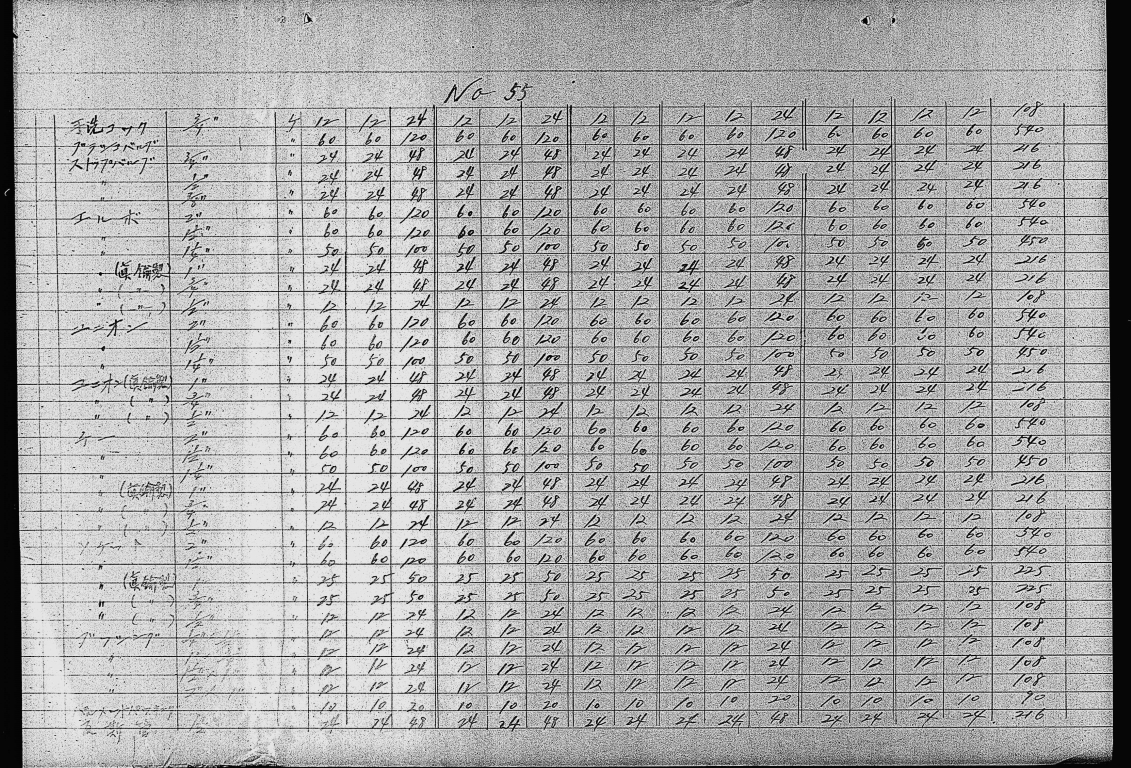 No 55
手洗コック 3/4" ケ 12 12 24 12 12 24 12 12 12 12 24 12 12 12 12 108
" 60 60 120 60 60 120 60 60 60 60 120 60 60 60 60 540
ストップバルブ 3/4" " 24 24 48 24 24 48 24 24 24 24 48 24 24 24 24 216
" " 24 24 48 24 24 48 24 24 24 24 48 24 24 24 24 216
" " 24 24 48 24 24 48 24 24 24 24 48 24 24 24 24 216
エルボ 2" " 60 60 120 60 60 120 60 60 60 60 120 60 60 60 60 540
" 1½" " 60 60 120 60 60 120 60 60 60 60 120 60 60 60 60 540
" 1¼" " 50 50 100 50 50 100 50 50 50 50 100 50 50 60 50 450
" (眞鍮製) 1" " 24 24 48 24 24 48 24 24 24 24 48 24 24 24 24 216
" ( " ) 3/4" " 24 24 48 24 24 48 24 24 24 24 48 24 24 24 24 216
" ( " ) ½" " 12 12 24 12 12 24 12 12 12 12 24 12 12 12 12 108
ユニオン 2" " 60 60 120 60 60 120 60 60 60 60 120 60 60 60 60 540
" 1½" " 60 60 120 60 60 120 60 60 60 60 120 60 60 60 60 540
" 1¼" " 50 50 100 50 50 100 50 50 50 50 100 50 50 50 50 450
ユニオン(眞鍮製) 1" " 24 24 48 24 24 48 24 24 24 24 48 25 24 24 24 216
" ( " ) 3/4" " 24 24 48 24 24 48 24 24 24 24 48 24 24 24 24 216
" ( " ) ½" " 12 12 24 12 12 24 12 12 12 12 24 12 12 12 12 108
チー 2" " 60 60 120 60 60 120 60 60 60 60 120 60 60 60 60 540
" 1½" " 60 60 120 60 60 120 60 60 60 60 120 60 60 60 60 540
" 1¼" " 50 50 100 50 50 100 50 50 50 50 100 50 50 50 50 450
" (眞鍮製) 1" " 24 24 48 24 24 48 24 24 24 24 48 24 24 24 24 216
" ( " ) 3/4" " 24 24 48 24 24 48 24 24 24 24 48 24 24 24 24 216
" ( " ) ½" " 12 12 24 12 12 24 12 12 12 12 24 12 12 12 12 108
ソケット 2" " 60 60 120 60 60 120 60 60 60 60 120 60 60 60 60 540
" " 60 60 120 60 60 120 60 60 60 60 120 60 60 60 60 540
" (眞鍮製 1" " 25 25 50 25 25 50 25 25 25 25 50 25 25 25 25 225
" ( " ) 3/4" " 25 25 50 25 25 50 25 25 25 25 50 25 25 25 25 225
" ( " ) ½" " 12 12 24 12 12 24 12 12 12 12 24 12 12 12 12 108
ブッシング " 12 12 24 12 12 24 12 12 12 12 24 12 12 12 12 108
" " 12 12 24 12 12 24 12 12 12 12 24 12 12 12 12 108
" " 12 12 24 12 12 24 12 12 12 12 24 12 12 12 12 108
" " 12 12 24 12 12 24 12 12 12 12 24 12 12 12 12 108
" 10 10 20 10 10 20 10 10 10 10 20 10 10 10 10 90
24 24 48 24 24 48 24 24 24 24 48 24 24 24 24 216